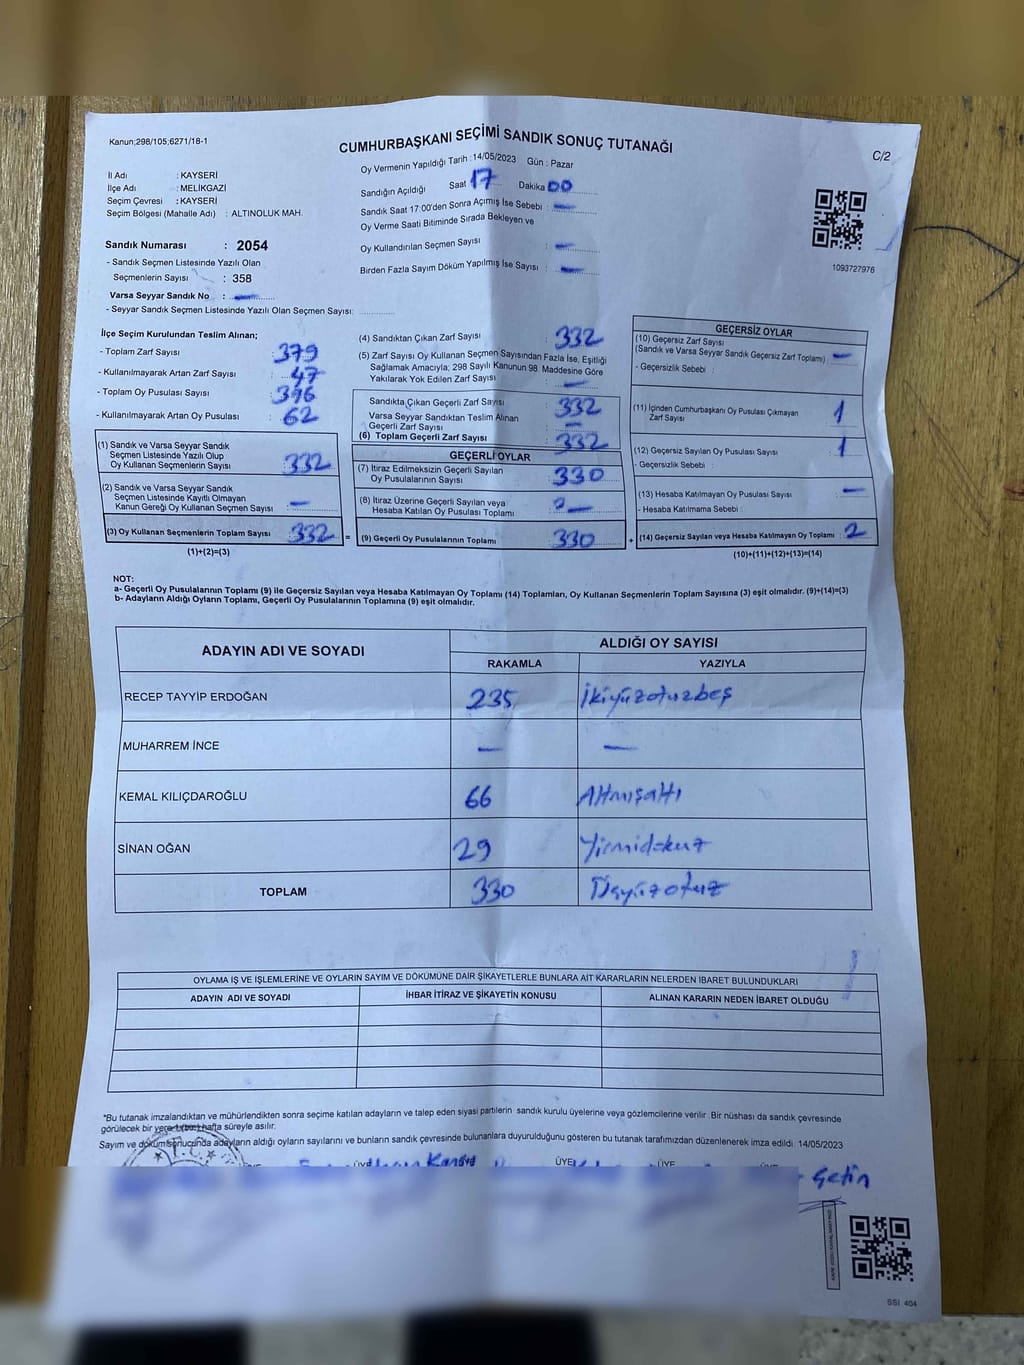 Kanun;298/105;6271/18-1
CUMHURBAŞKANI SEÇİMİ SANDIK SONUÇ TUTANAĞI
C/2
İl Adı : KAYSERİ
İlçe Adı : MELİKGAZİ
Seçim Çevresi : KAYSERİ
Seçim Bölgesi (Mahalle Adı) : ALTINOLUK MAH.
Sandık Numarası : 2054
- Sandık Seçmen Listesinde Yazılı Olan
Seçmenlerin Sayısı : 358
Varsa Seyyar Sandık No : —
- Seyyar Sandık Seçmen Listesinde Yazılı Olan Seçmen Sayısı:
Oy Vermenin Yapıldığı Tarih : 14/05/2023 Gün : Pazar
Sandığın Açıldığı Saat 17 Dakika 00
Sandık Saat 17:00'den Sonra Açımış İse Sebebi : —
Oy Verme Saati Bitiminde Sırada Bekleyen ve
Oy Kullandırılan Seçmen Sayısı : —
Birden Fazla Sayım Döküm Yapılmış İse Sayısı : —
1093727976
İlçe Seçim Kurulundan Teslim Alınan;
- Toplam Zarf Sayısı : 379
- Kullanılmayarak Artan Zarf Sayısı : 47
- Toplam Oy Pusulası Sayısı : 396
- Kullanılmayarak Artan Oy Pusulası : 62
(1) Sandık ve Varsa Seyyar Sandık
Seçmen Listesinde Yazılı Olup
Oy Kullanan Seçmenlerin Sayısı : 332
(2) Sandık ve Varsa Seyyar Sandık
Seçmen Listesinde Kayıtlı Olmayan
Kanun Gereği Oy Kullanan Seçmen Sayısı : —
(3) Oy Kullanan Seçmenlerin Toplam Sayısı : 332 =
(1)+(2)=(3)
(4) Sandıktan Çıkan Zarf Sayısı : 332
(5) Zarf Sayısı Oy Kullanan Seçmen Sayısından Fazla İse, Eşitliği
Sağlamak Amacıyla; 298 Sayılı Kanunun 98. Maddesine Göre
Yakılarak Yok Edilen Zarf Sayısı : —
Sandıkta Çıkan Geçerli Zarf Sayısı : 332
Varsa Seyyar Sandıktan Teslim Alınan
Geçerli Zarf Sayısı : —
(6) Toplam Geçerli Zarf Sayısı : 332
GEÇERLİ OYLAR
(7) İtiraz Edilmeksizin Geçerli Sayılan
Oy Pusulalarının Sayısı : 330
(8) İtiraz Üzerine Geçerli Sayılan veya
Hesaba Katılan Oy Pusulası Toplamı : —
(9) Geçerli Oy Pusulalarının Toplamı : 330 +
GEÇERSİZ OYLAR
(10) Geçersiz Zarf Sayısı
(Sandık ve Varsa Seyyar Sandık Geçersiz Zarf Toplamı) : —
- Geçersizlik Sebebi :
(11) İçinden Cumhurbaşkanı Oy Pusulası Çıkmayan
Zarf Sayısı : 1
(12) Geçersiz Sayılan Oy Pusulası Sayısı : 1
- Geçersizlik Sebebi :
(13) Hesaba Katılmayan Oy Pusulası Sayısı : —
- Hesaba Katılmama Sebebi :
(14) Geçersiz Sayılan veya Hesaba Katılmayan Oy Toplamı : 2
(10)+(11)+(12)+(13)=(14)
NOT:
a- Geçerli Oy Pusulalarının Toplamı (9) ile Geçersiz Sayılan veya Hesaba Katılmayan Oy Toplamı (14) Toplamları, Oy Kullanan Seçmenlerin Toplam Sayısına (3) eşit olmalıdır. (9)+(14)=(3)
b- Adayların Aldığı Oyların Toplamı, Geçerli Oy Pusulalarının Toplamına (9) eşit olmalıdır.
ADAYIN ADI VE SOYADI
ALDIĞI OY SAYISI
RAKAMLA YAZIYLA
RECEP TAYYİP ERDOĞAN 235 İkiyüzotuzbeş
MUHARREM İNCE — —
KEMAL KILIÇDAROĞLU 66 Altmışaltı
SİNAN OĞAN 29 Yirmidokuz
TOPLAM 330 Üçyüzotuz
OYLAMA İŞ VE İŞLEMLERİNE VE OYLARIN SAYIM VE DÖKÜMÜNE DAİR ŞİKAYETLERLE BUNLARA AİT KARARLARIN NELERDEN İBARET BULUNDUKLARI
ADAYIN ADI VE SOYADI İHBAR İTİRAZ VE ŞİKAYETİN KONUSU ALINAN KARARIN NEDEN İBARET OLDUĞU
*Bu tutanak imzalandıktan ve mühürlendikten sonra seçime katılan adayların ve talep eden siyasi partilerin sandık kurulu üyelerine veya gözlemcilerine verilir. Bir nüshası da sandık çevresinde
görülecek bir yere 1(bir) hafta süreyle asılır.
Sayım ve döküm sonucunda adayların aldığı oyların sayılarını ve bunların sandık çevresinde bulunanlara duyurulduğunu gösteren bu tutanak tarafımızdan düzenlenerek imza edildi. 14/05/2023
T.C.
ÜYE ÜYE ÜYE
Çetin
SSI 404